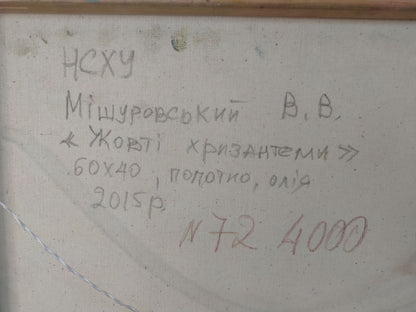 НСХУ
Мішуровський В. В.
« Жовті хризантеми »
60х40, полотно, олія
2015р.
N 72 4000